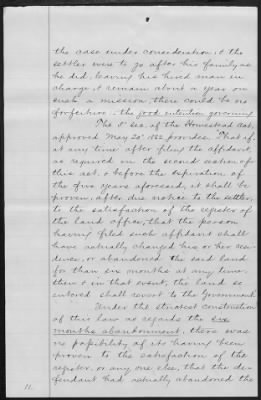 the case under consideration, & the
settler were to go after his family, as
he did, leaving his hired man in
charge, & remain about a year on
such a mission, there could be no
forfeiture, the good intention governing.
The 5" sec. of the Homestead Act,
approved May 20" 1862 provides "That if,
at any time after filing the affidavit,
as required in the second section of
this act, & before the expiration of
the five years aforesaid, it shall be
proven, after due notice to the settler,
to the satisfaction of the register of
the land office, that the person
having filed such affidavit shall
have actually changed his or her resi
dence, or abandoned the said land
for than six months at any time,
then & in that event, the land so
entered shall revert to the Government.
Under the strictest construction
of this law as regards the six
months abandonment, there was
no possibility of its having been
proven to the satisfaction of the
register, or any one else, that the de-
fendant had actually abandoned the